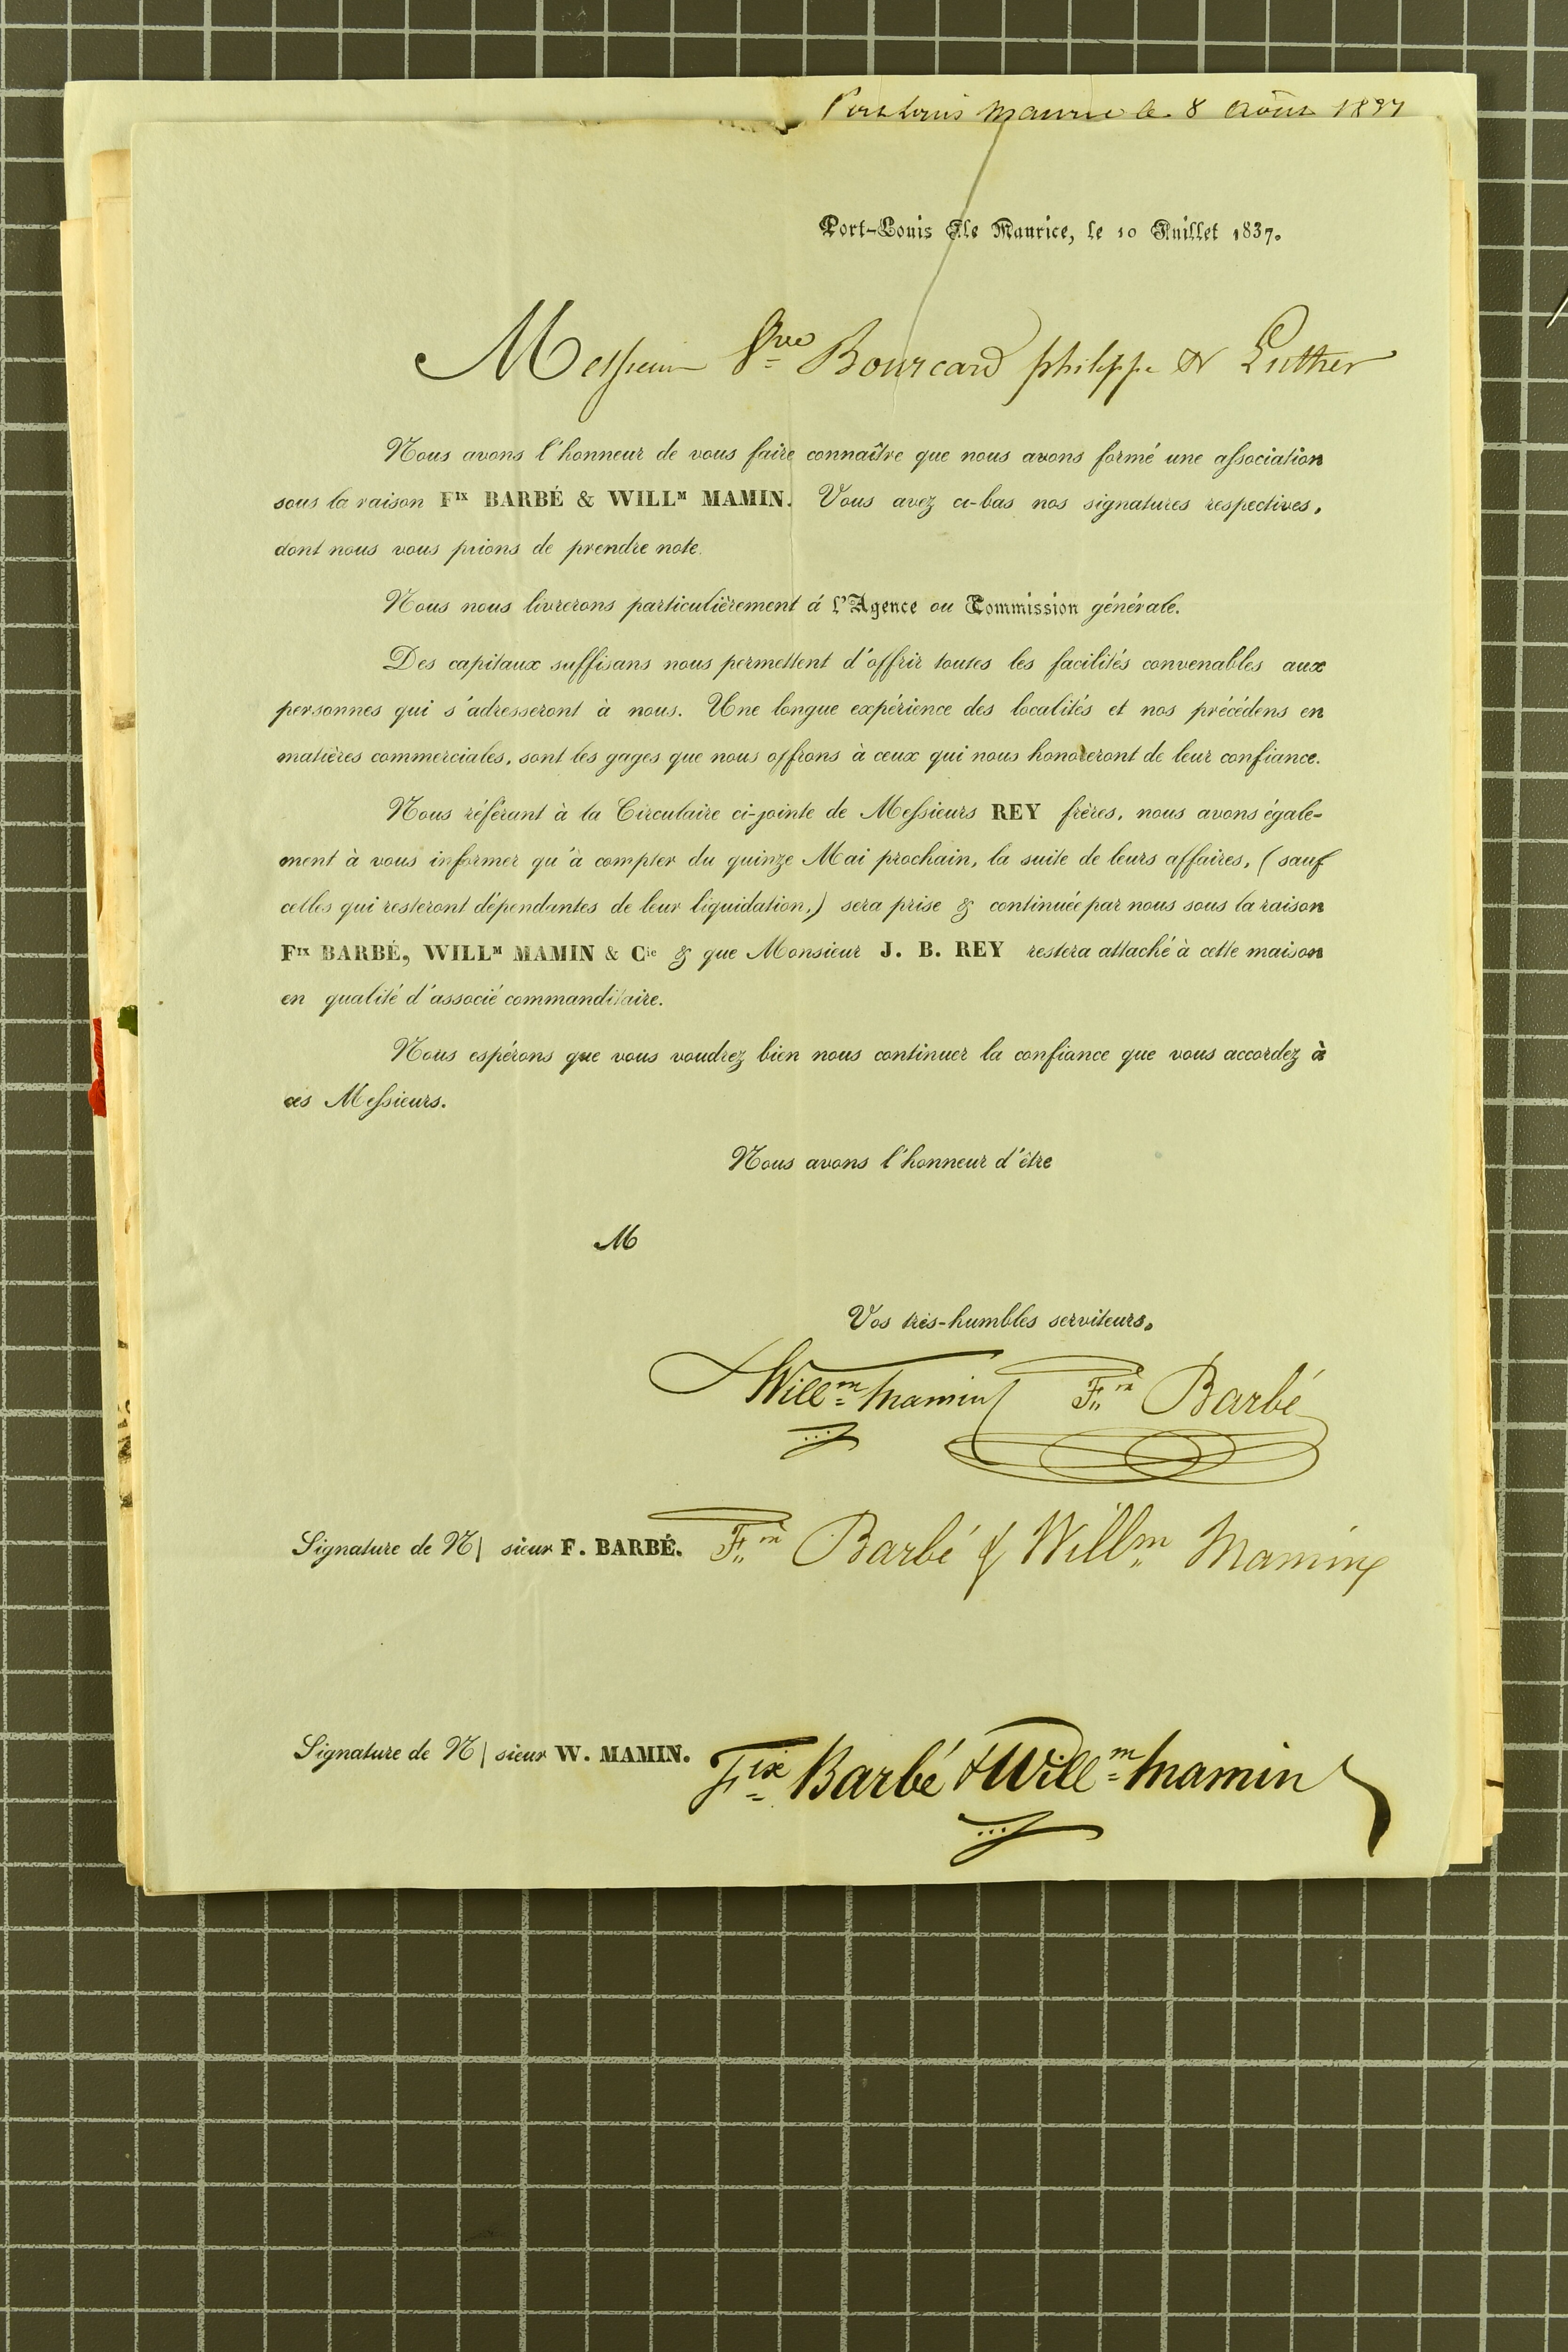 Port Louis Maurice le 8 Août 1837
Port-Louis Ile Maurice, le 10 Juillet 1837.
Messieurs Vve Bourcard philippe & Luther
Nous avons l'honneur de vous faire connaître que nous avons formé une association
sous la raison Fix BARBÉ & WILLM MAMIN. Vous avez ci-bas nos signatures respectives,
dont nous vous prions de prendre note.
Nous nous livrerons particulièrement á l'Agence ou Commission générale.
Des capitaux suffisans nous permettent d'offrir toutes les facilités convenables aux
personnes qui s'adresseront à nous. Une longue expérience des localités et nos précédens en
matières commerciales, sont les gages que nous offrons à ceux qui nous honoreront de leur confiance.
Nous référant à la Circulaire ci-jointe de Messieurs REY frères, nous avons égale-
ment à vous informer qu'à compter du quinze Mai prochain, la suite de leurs affaires, (sauf
celles qui resteront dépendantes de leur liquidation,) sera prise & continuée par nous sous la raison
Fix BARBÉ, WILLM MAMIN & Cie & que Monsieur J. B. REY restera attaché à cette maison
en qualité d'associé commanditaire.
Nous espérons que vous voudrez bien nous continuer la confiance que vous accordez à
ces Messieurs.
Nous avons l'honneur d'être
M
Vos très-humbles serviteurs.
Willm Mamin Fix Barbé
Signature de N/ sieur F. BARBÉ. Fix Barbé & Willm Mamin
Signature de N/ sieur W. MAMIN. Fix Barbé & Willm Mamin